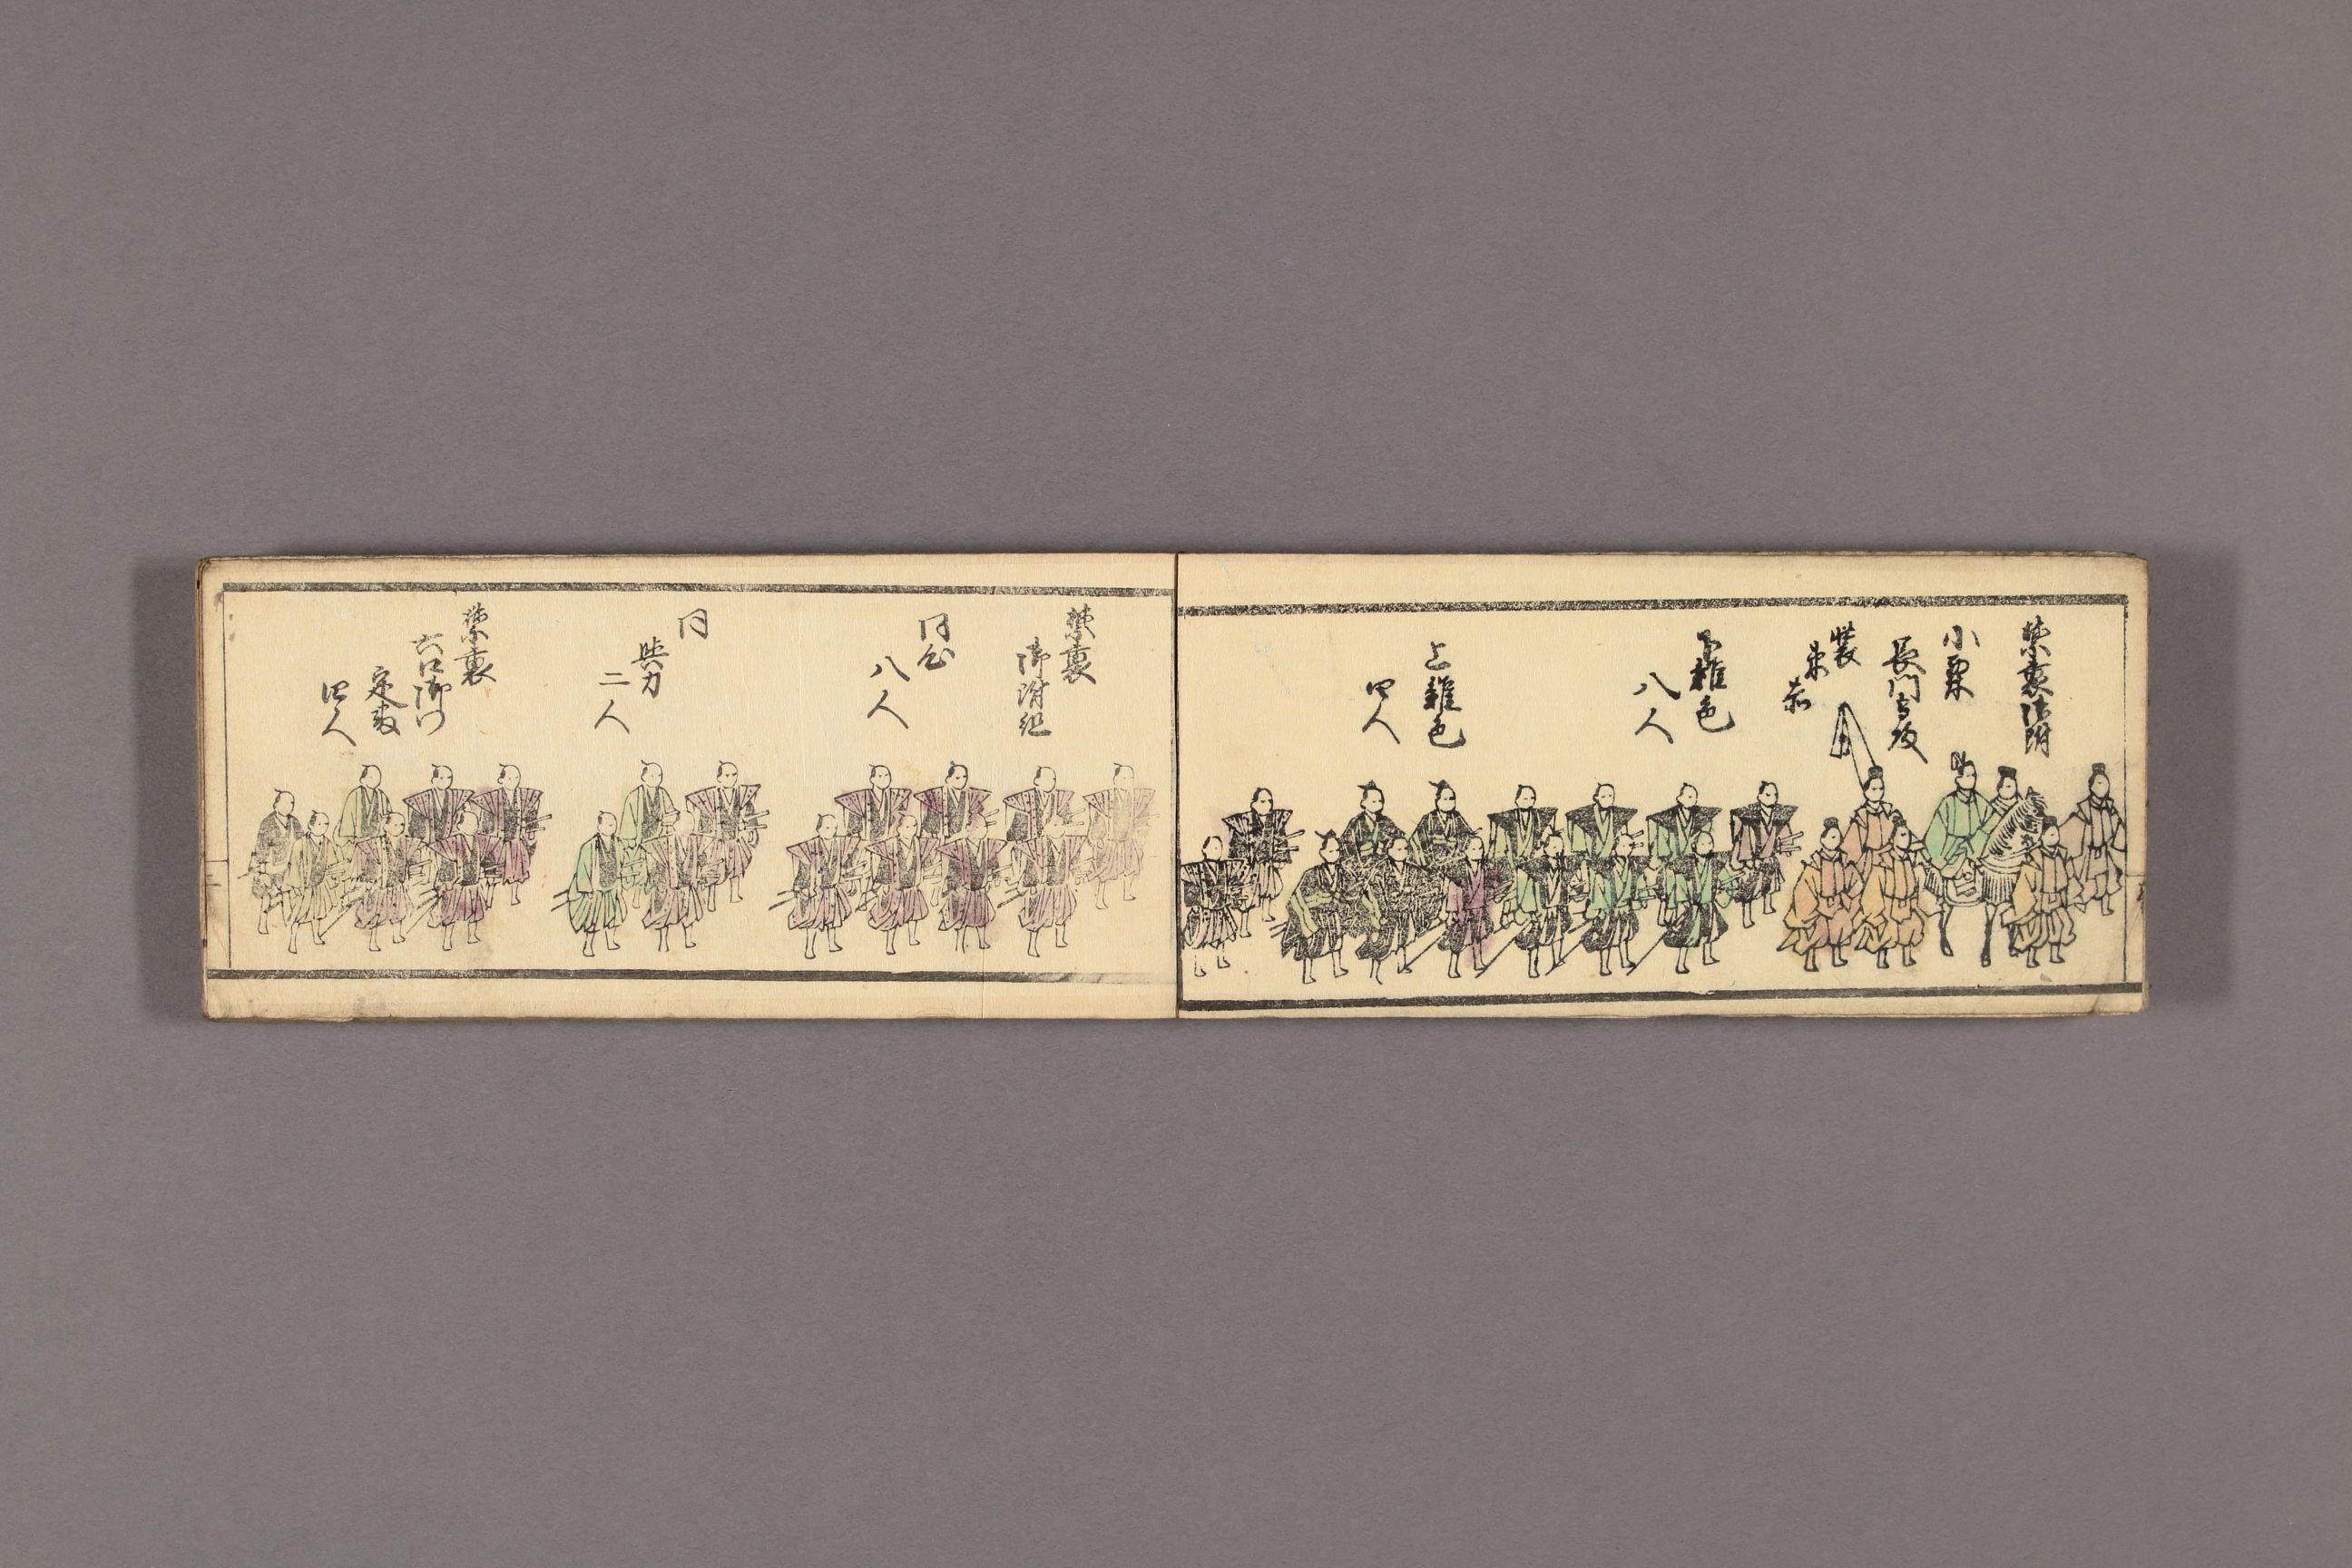 禁裏御附
小栗
長門守殿
装
束
赤
下雜色
八人
上雜色
四人
禁裏
御附組
同心
八人
同
與力
二人
禁裏
六口御門
定番
四人